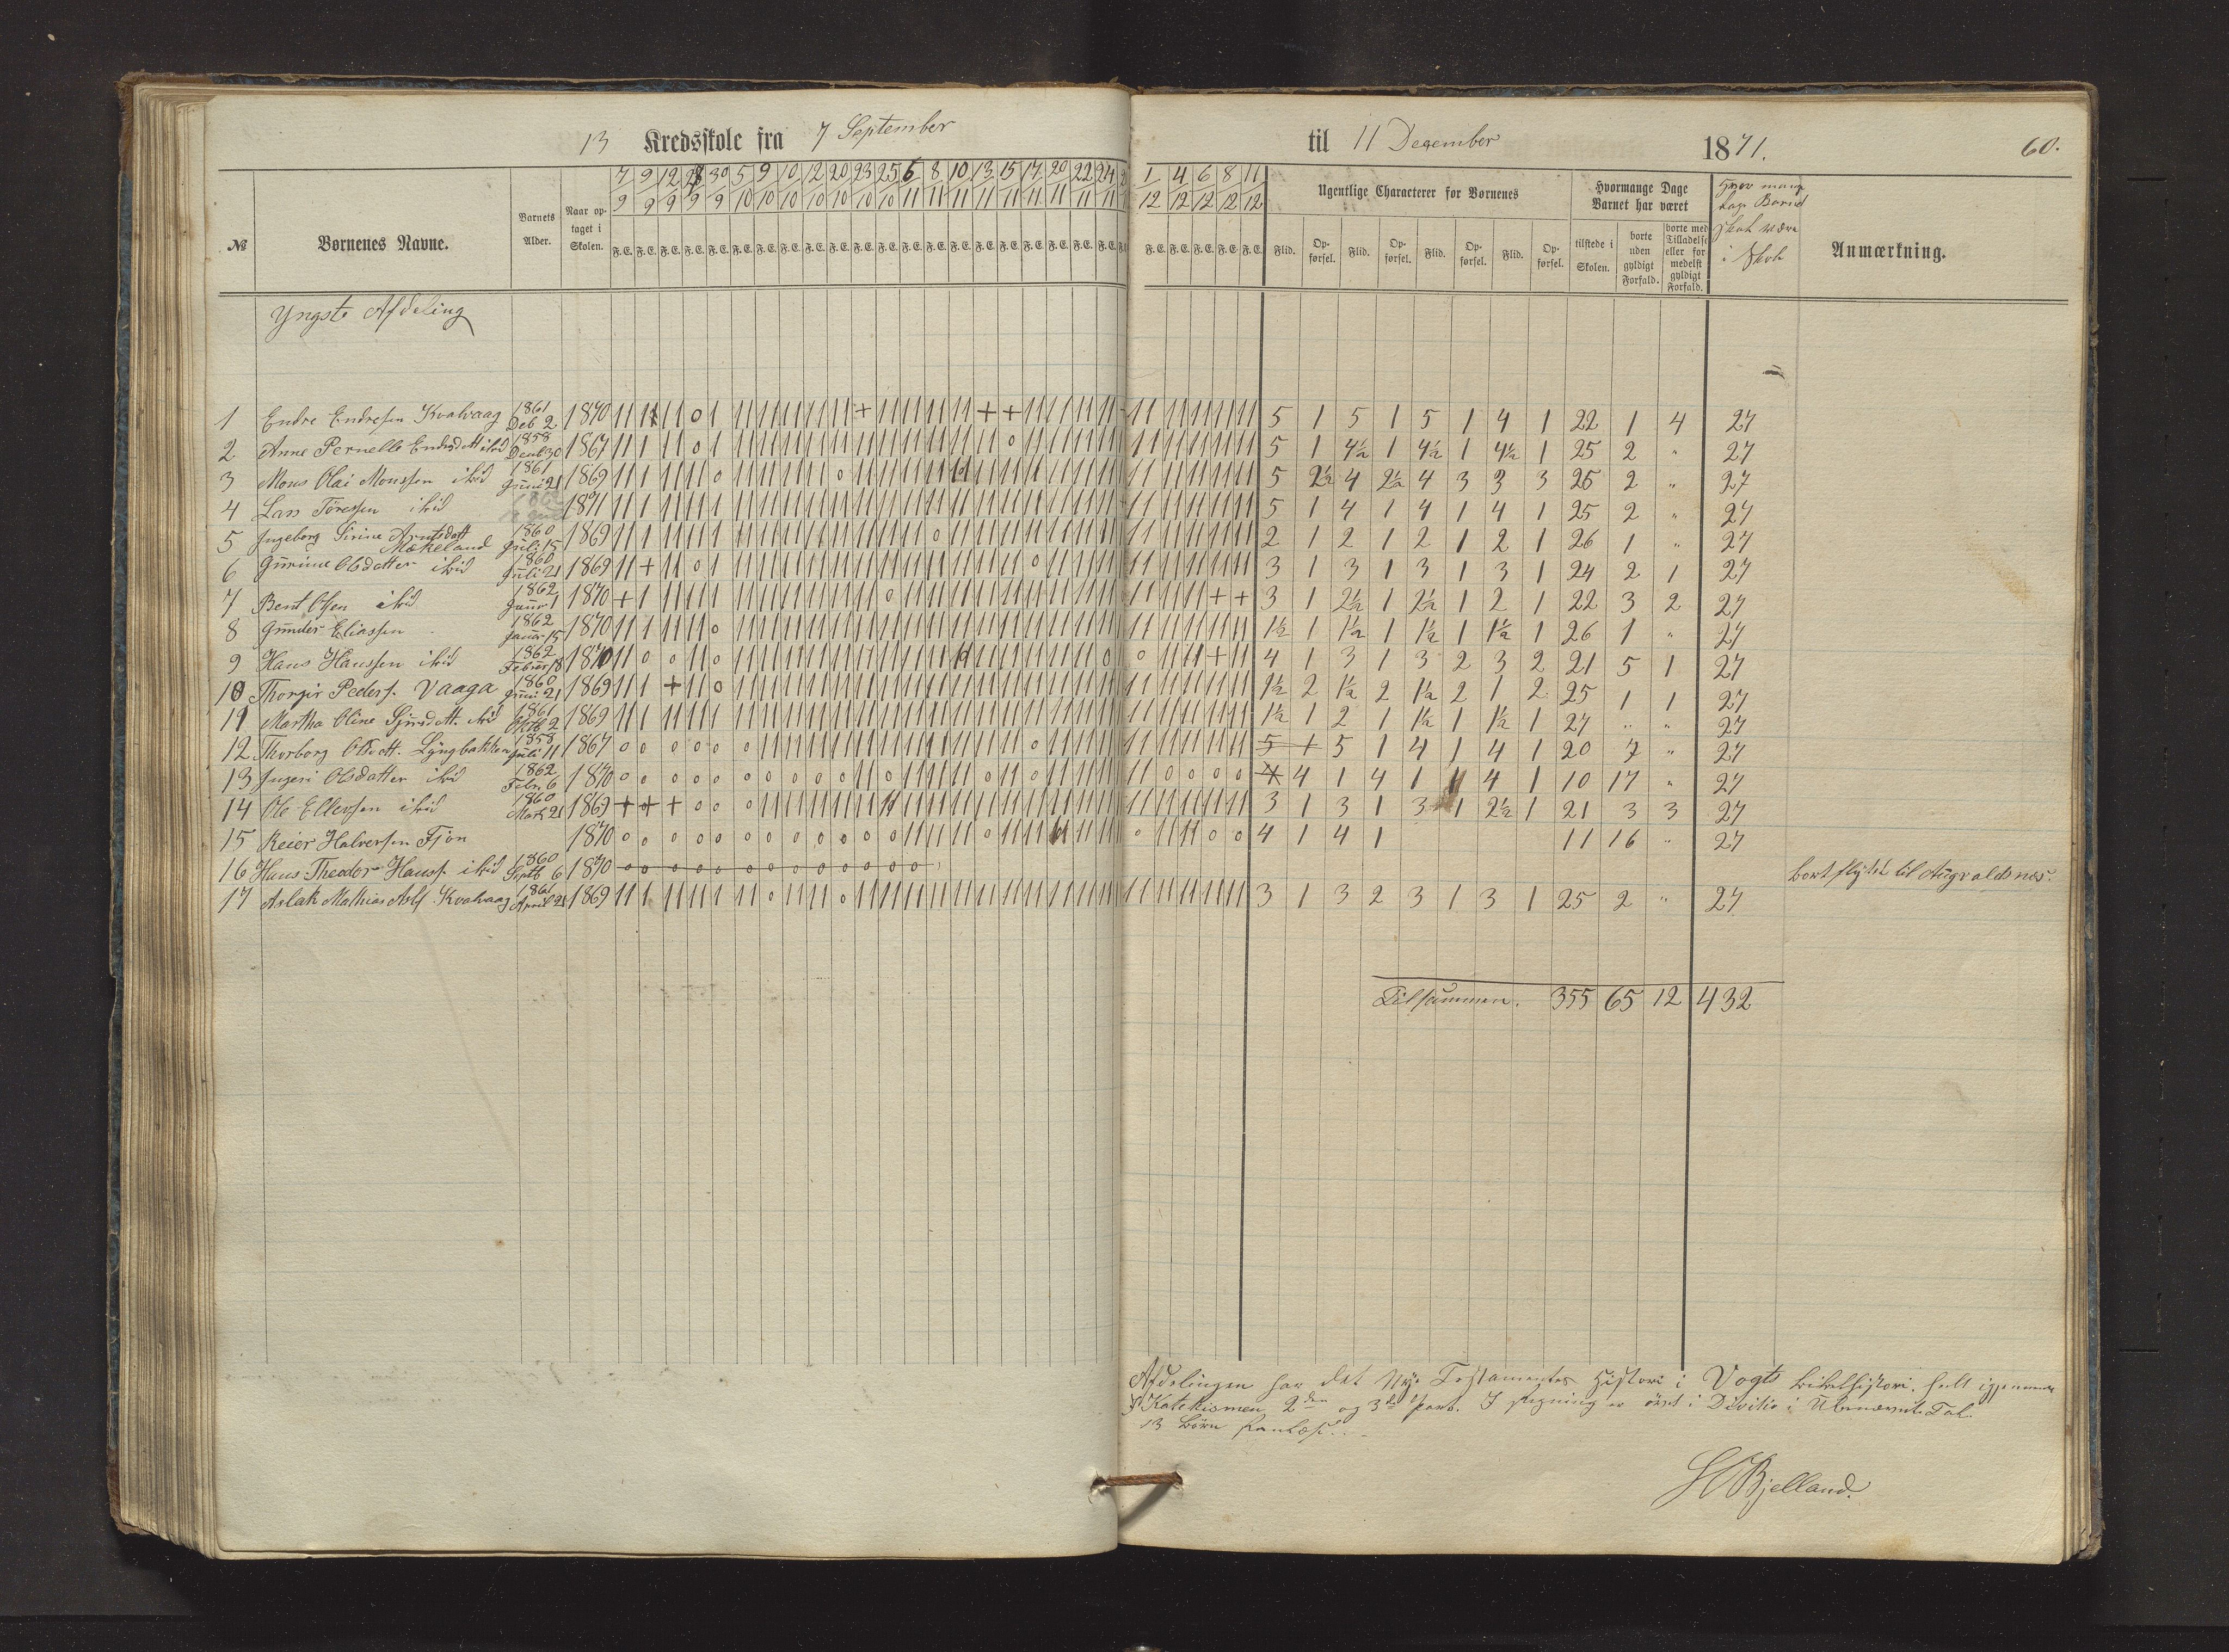 13 Kredsskole fra 7 September til 11 December 1871. 60.
№ Børnenes Navne. Barnets Alder. Naar optaget i Skolen. Ugentlige Characterer for Børnenes Hvormange Dage Barnet har været Anmærkning.
7/9 9/9 12/9 28/9 30/9 5/10 9/10 10/10 12/10 20/10 23/10 25/10 6/11 8/11 10/11 13/11 15/11 17/11 20/11 22/11 24/11 1/12 4/12 6/12 8/12 11/12
Flid. Opførsel. Flid. Opførsel. Flid. Opførsel. Flid. Opførsel. tilstede i Skolen. borte uden gyldigt Forfald. borte med Tilladelse eller formedelst gyldigt Forfald.
Yngste Afdeling
1 Endre Endresen Kvalvaag 1861 Deb 2 1870 5 1 5 1 5 1 4 1 22 1 4 27
2 Anne Pernelle Endresdatt ibid 1858 30 1867 5 1 4½ 1 4½ 1 4½ 1 25 2 " 27
3 Mons Olai Monssen ibid 1861 Juni 21 1869 5 2½ 4 2½ 4 3 3 3 25 2 " 27
4 Lars Töressen ibid 1871 5 1 4 1 4 1 4 1 25 2 " 27
5 Ingeborg Sirine Arntsdatt Mækeland 1860 Juli 15 1869 2 1 2 1 2 1 2 1 26 1 " 27
6 Gurine Olsdatter ibid 1860 Juli 21 1869 3 1 3 1 3 1 3 1 24 2 1 27
7 Bent Olsen ibid 1862 1 1870 3 1 2½ 1 2½ 1 2 1 22 3 2 27
8 Gunder Eliassen 1862 Januar 15 1870 1½ 1 1½ 1 1½ 1 1½ 1 26 1 " 27
9 Hans Hanssen ibid 1862 Februar 18 1870 4 1 3 1 3 2 3 2 21 5 1 27
10 Thorgir Peders. Vaaga 1860 Juni 21 1869 1½ 2 1½ 2 1½ 2 1 2 25 1 1 27
11 Martha Oline Sjursdatt. ibid 1861 Oktb 2 1869 1½ 1 2 1 1½ 1 1½ 1 27 " " 27
12 Thorborg Olsdatt. Lyngbakken 1858 Juli 11 1867 5 1 5 1 4 1 4 1 20 7 " 27
13 Ingeri Olsdatter ibid 1862 Febr. 6 1870 4 4 1 4 1 4 1 10 17 " 27
14 Ole Ellevsen ibid 1860 Marts 21 1869 3 1 3 1 3 1 2½ 1 21 3 3 27
15 Reier Halversen Fjon 1870 4 1 4 1 11 16 " 27
16 Hans Theodor Hanss. ibid 1860 Septb 6 1870 bortflyttet til Augvaldsnæs.
17 Aslak Mathias Asl. Kvalvaag 1861 April 21 1869 3 1 3 2 3 1 3 1 25 2 " 27
Tilsammen. 355 65 12 432
Afdelingen har det Nye Testamentes Historie i Vogts Bibelhistori. helt igjennem
Katekismen 2den og 3die part. I Regning er övet i Divitio i Ubenævnte Tal.
13 Börn
H Bjelland.